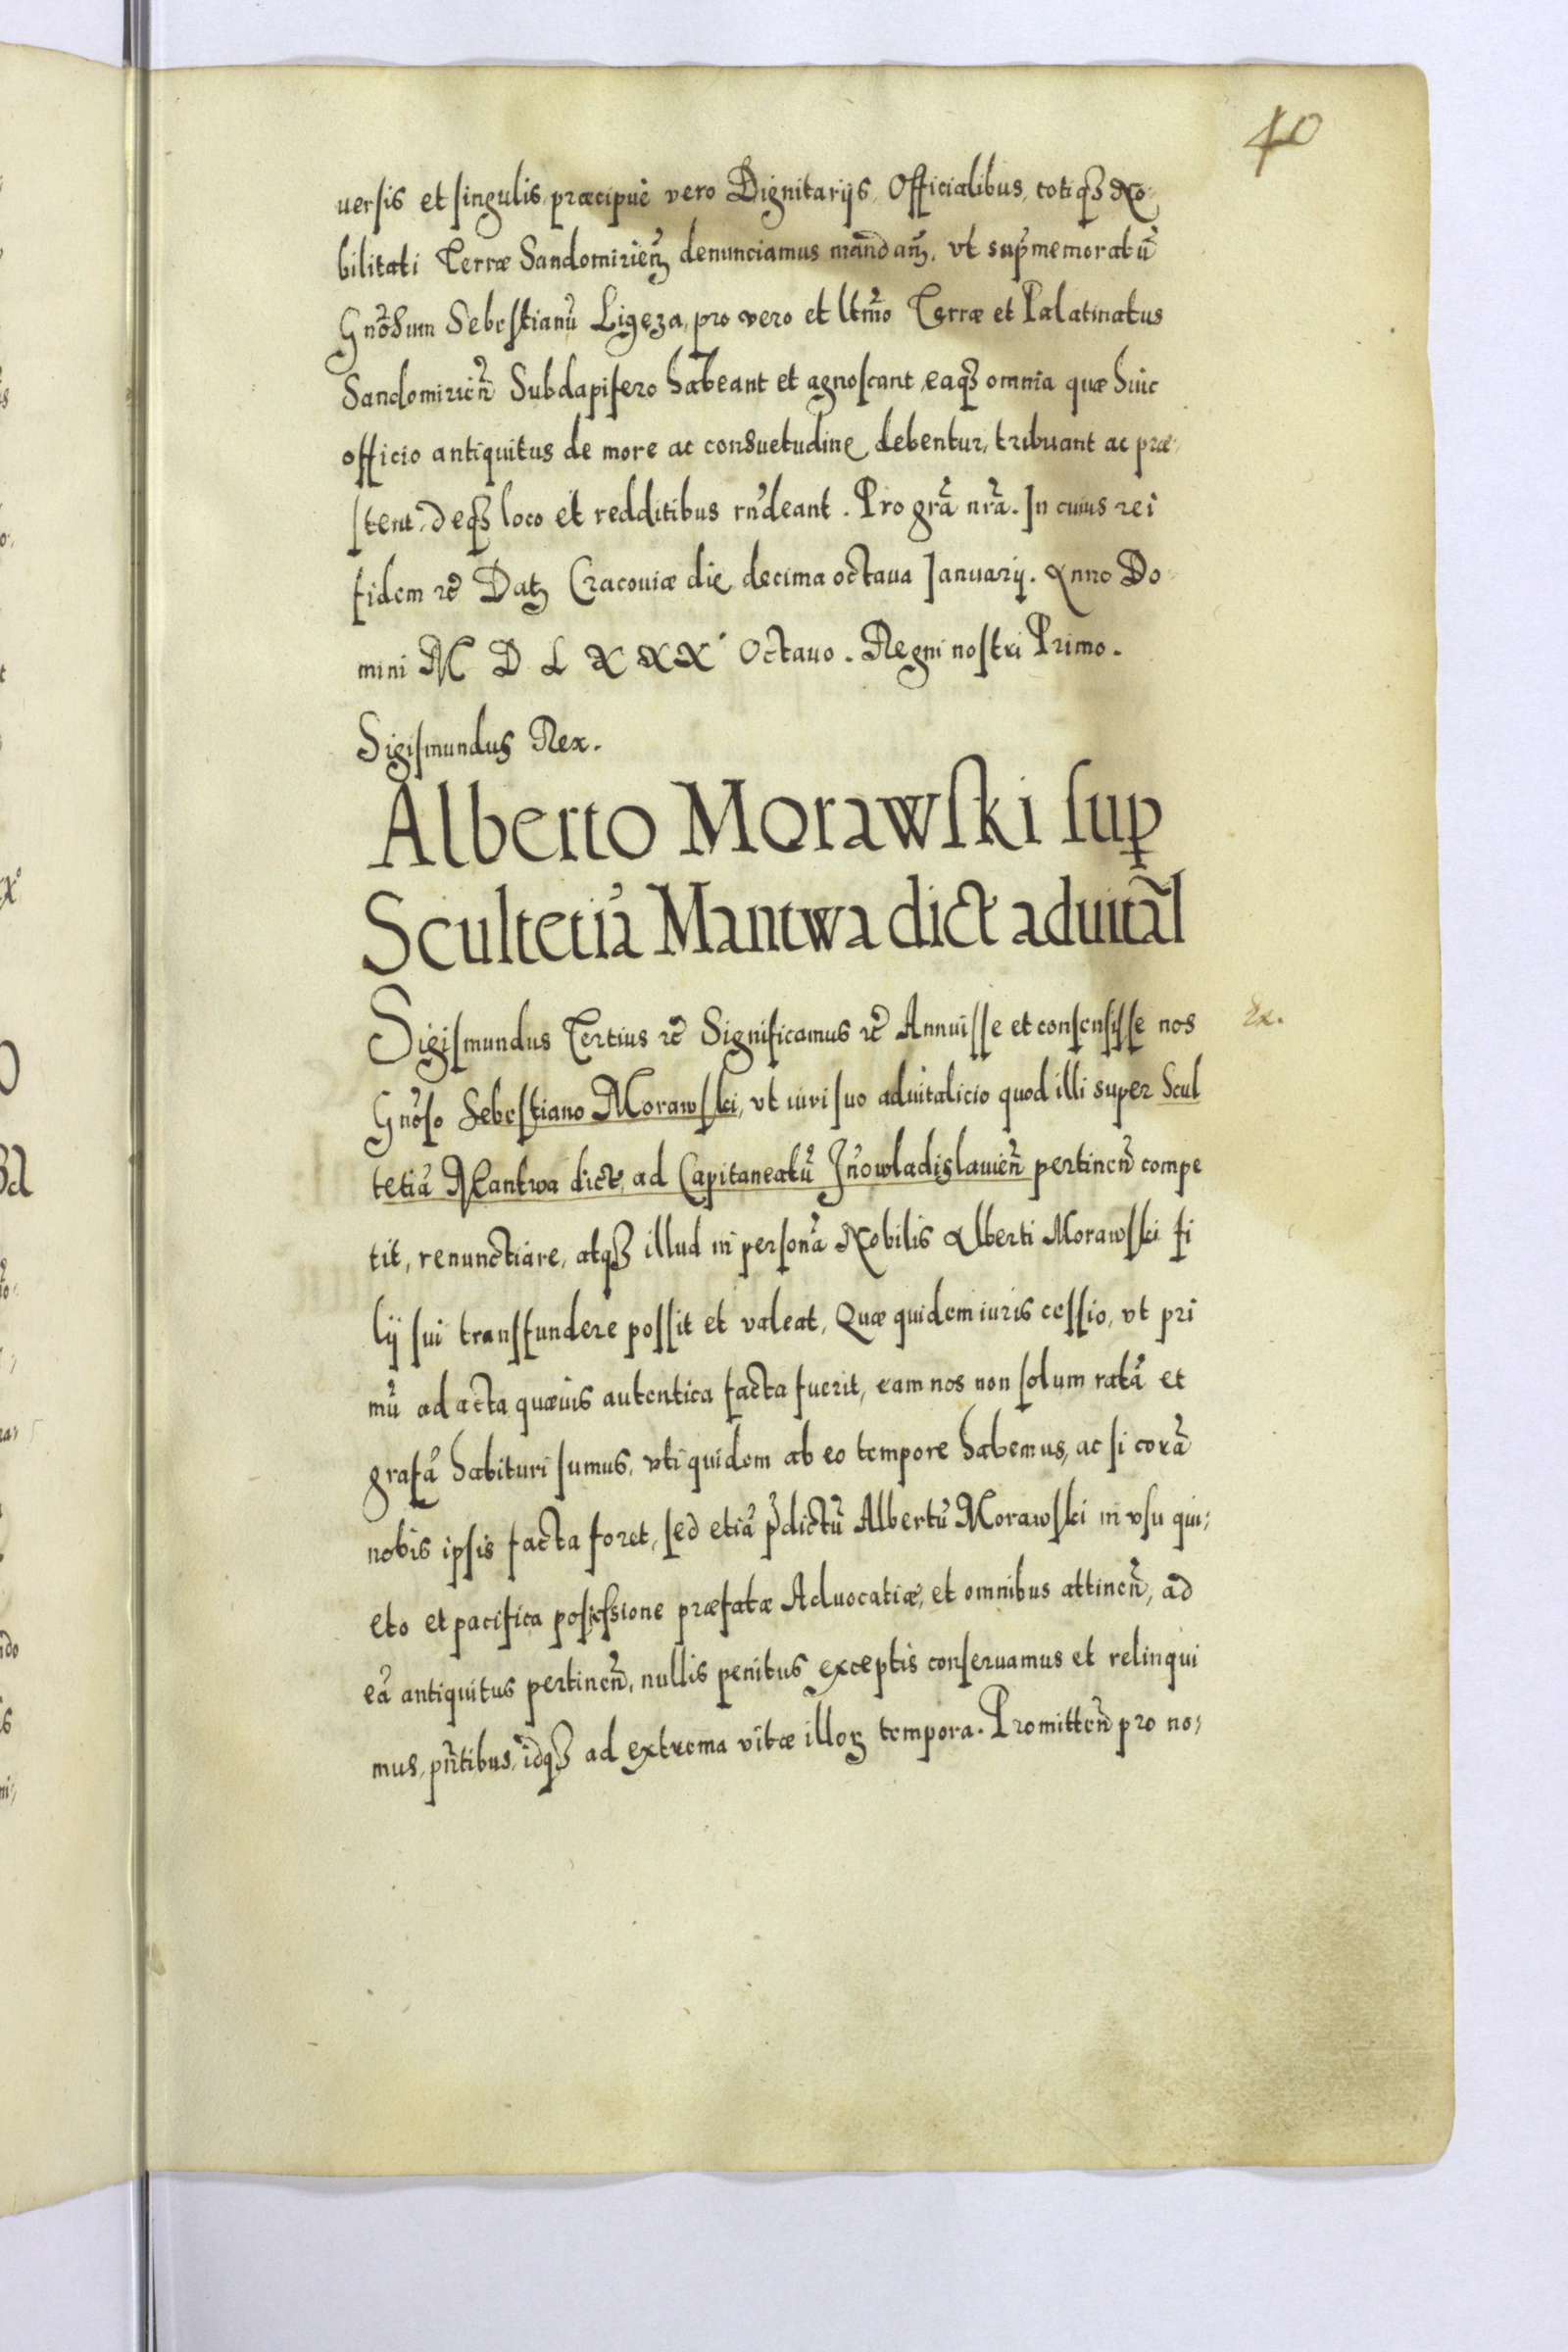 40
uersis et singulis, præcipuè vero Dignitarijs, Officialibus, totiqȝ No-
bilitati Terræ Sandomirien̄ denunciamus mandam̄, vt sup̄memoratū
Gn̄osum Sebestianū Ligęza, pro vero et ltm̄o Terræ et Palatinatus
Sandomirien̄ Subdapifero habeant et agnoscant, eaqȝ omnia quæ huic
officio antiquitus de more ac consuetudine debentur, tribuant ac præ-
stent, deqȝ loco et redditibus rn̄deant. Pro grā nrā. In cuius rei
fidem etc̄ Datȝ Cracouiæ die decima octaua Januarij. Anno Do-
mini M D L X X X° Octauo. Regni nostri Primo.
Sigismundus Rex.
Alberto Morawski sup
Scultetiā Mantwa dict aduitāl
Sigismundus Tertius etc̄ Significamus etc̄ Annuisse et consensisse nos
Ex.
Gn̄oso Sebestiano Morawski, vt iuri suo aduitalicio quod illi super Scul
tetiā Mantwa dict, ad Capitaneatū Jn̄owladislauien̄ pertinen̄ compe
tit, renunctiare, atqȝ illud in personā Nobilis Alberti Morawski fi
lij sui transfundere possit et valeat, Quæ quidem iuris cessio, vt pri
mū ad acta quæuis autentica facta fuerit, eam nos non solum ratā et
gratā habituri sumus, vti quidem ab eo tempore habemus, ac si corā
nobis ipsis facta foret, sed etiā p̄dictū Albertū Morawski in vsu qui-
eto et pacifica possessione præfatæ Aduocatiæ, et omnibus attinen̄, ad
eā antiquitus pertinen̄, nullis penitus exceptis conseruamus et relinqui
mus, pn̄tibus, idqȝ ad extrema vitæ illoꝝ tempora. Promitten̄ pro no-